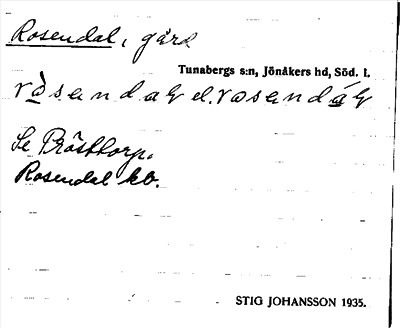 Rosendal, gård
Tunabergs s:n, Jönåkers hd, Söd. l.
el.
Se Prösttorp.
Rosendal kb.
STIG JOHANSSON 1935.